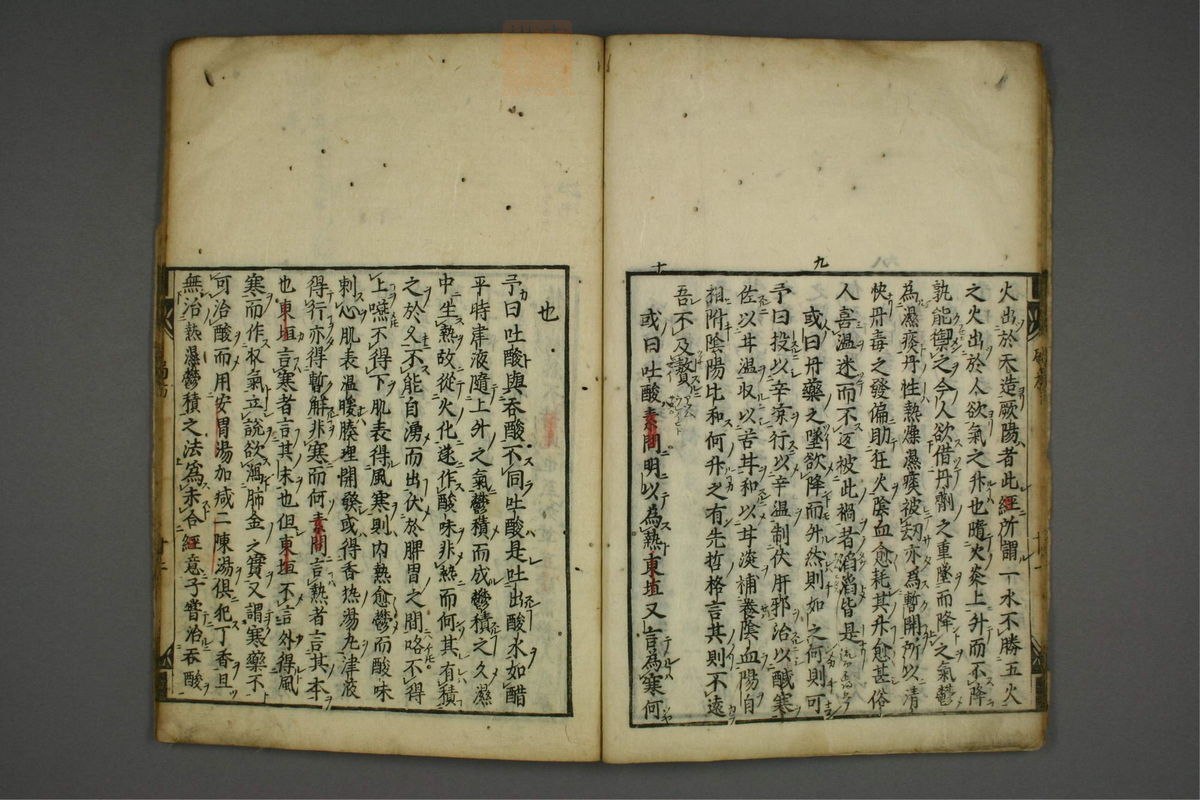 火出於天造厥陽者此經所謂一水不勝五火
之火出於人欲氣之升也隨火炎上升而不降
孰能禦之今人欲借丹劑之重墜而降之氣鬱
為濕痰丹性熱燥濕痰被劫亦為暫開所以清
快丹毒之發偏助狂火陰血愈耗其升愈甚俗
人喜溫迷而不返被此禍者滔滔皆是
九
或曰丹藥之墜欲降而升然則如之何則可
予曰投以辛涼行以辛溫制伏肝邪治以鹹寒
佐以甘溫収以苦甘和以甘淡補養陰血陽自
相附陰陽比和何升之有先哲格言其則不遠
吾不及贅
十
或曰吐酸素問明以為熱東垣又言為寒何
也
予曰吐酸與吞酸不同吐酸是吐出酸水如醋
平時津液隨上升之氣鬱積而成鬱積之久濕
中生熱故從火化遂作酸味非熱而何其有積
之於久不能自湧而出伏於脾胃之間咯不得
上嚥不得下肌表得風寒則内熱愈鬱而酸味
刺心肌表溫暖腠理開發或得香热湯丸津液
得行亦得暫解非寒而何素問言熱者言其本
也東垣言寒者言其末也但東垣不言外得風
寒而作収氣立說欲瀉肺金之實又謂寒藥不
可治酸而用安胃湯加减二陳湯俱犯丁香且
無治熱濕鬱積之法為未合經意予嘗治吞酸